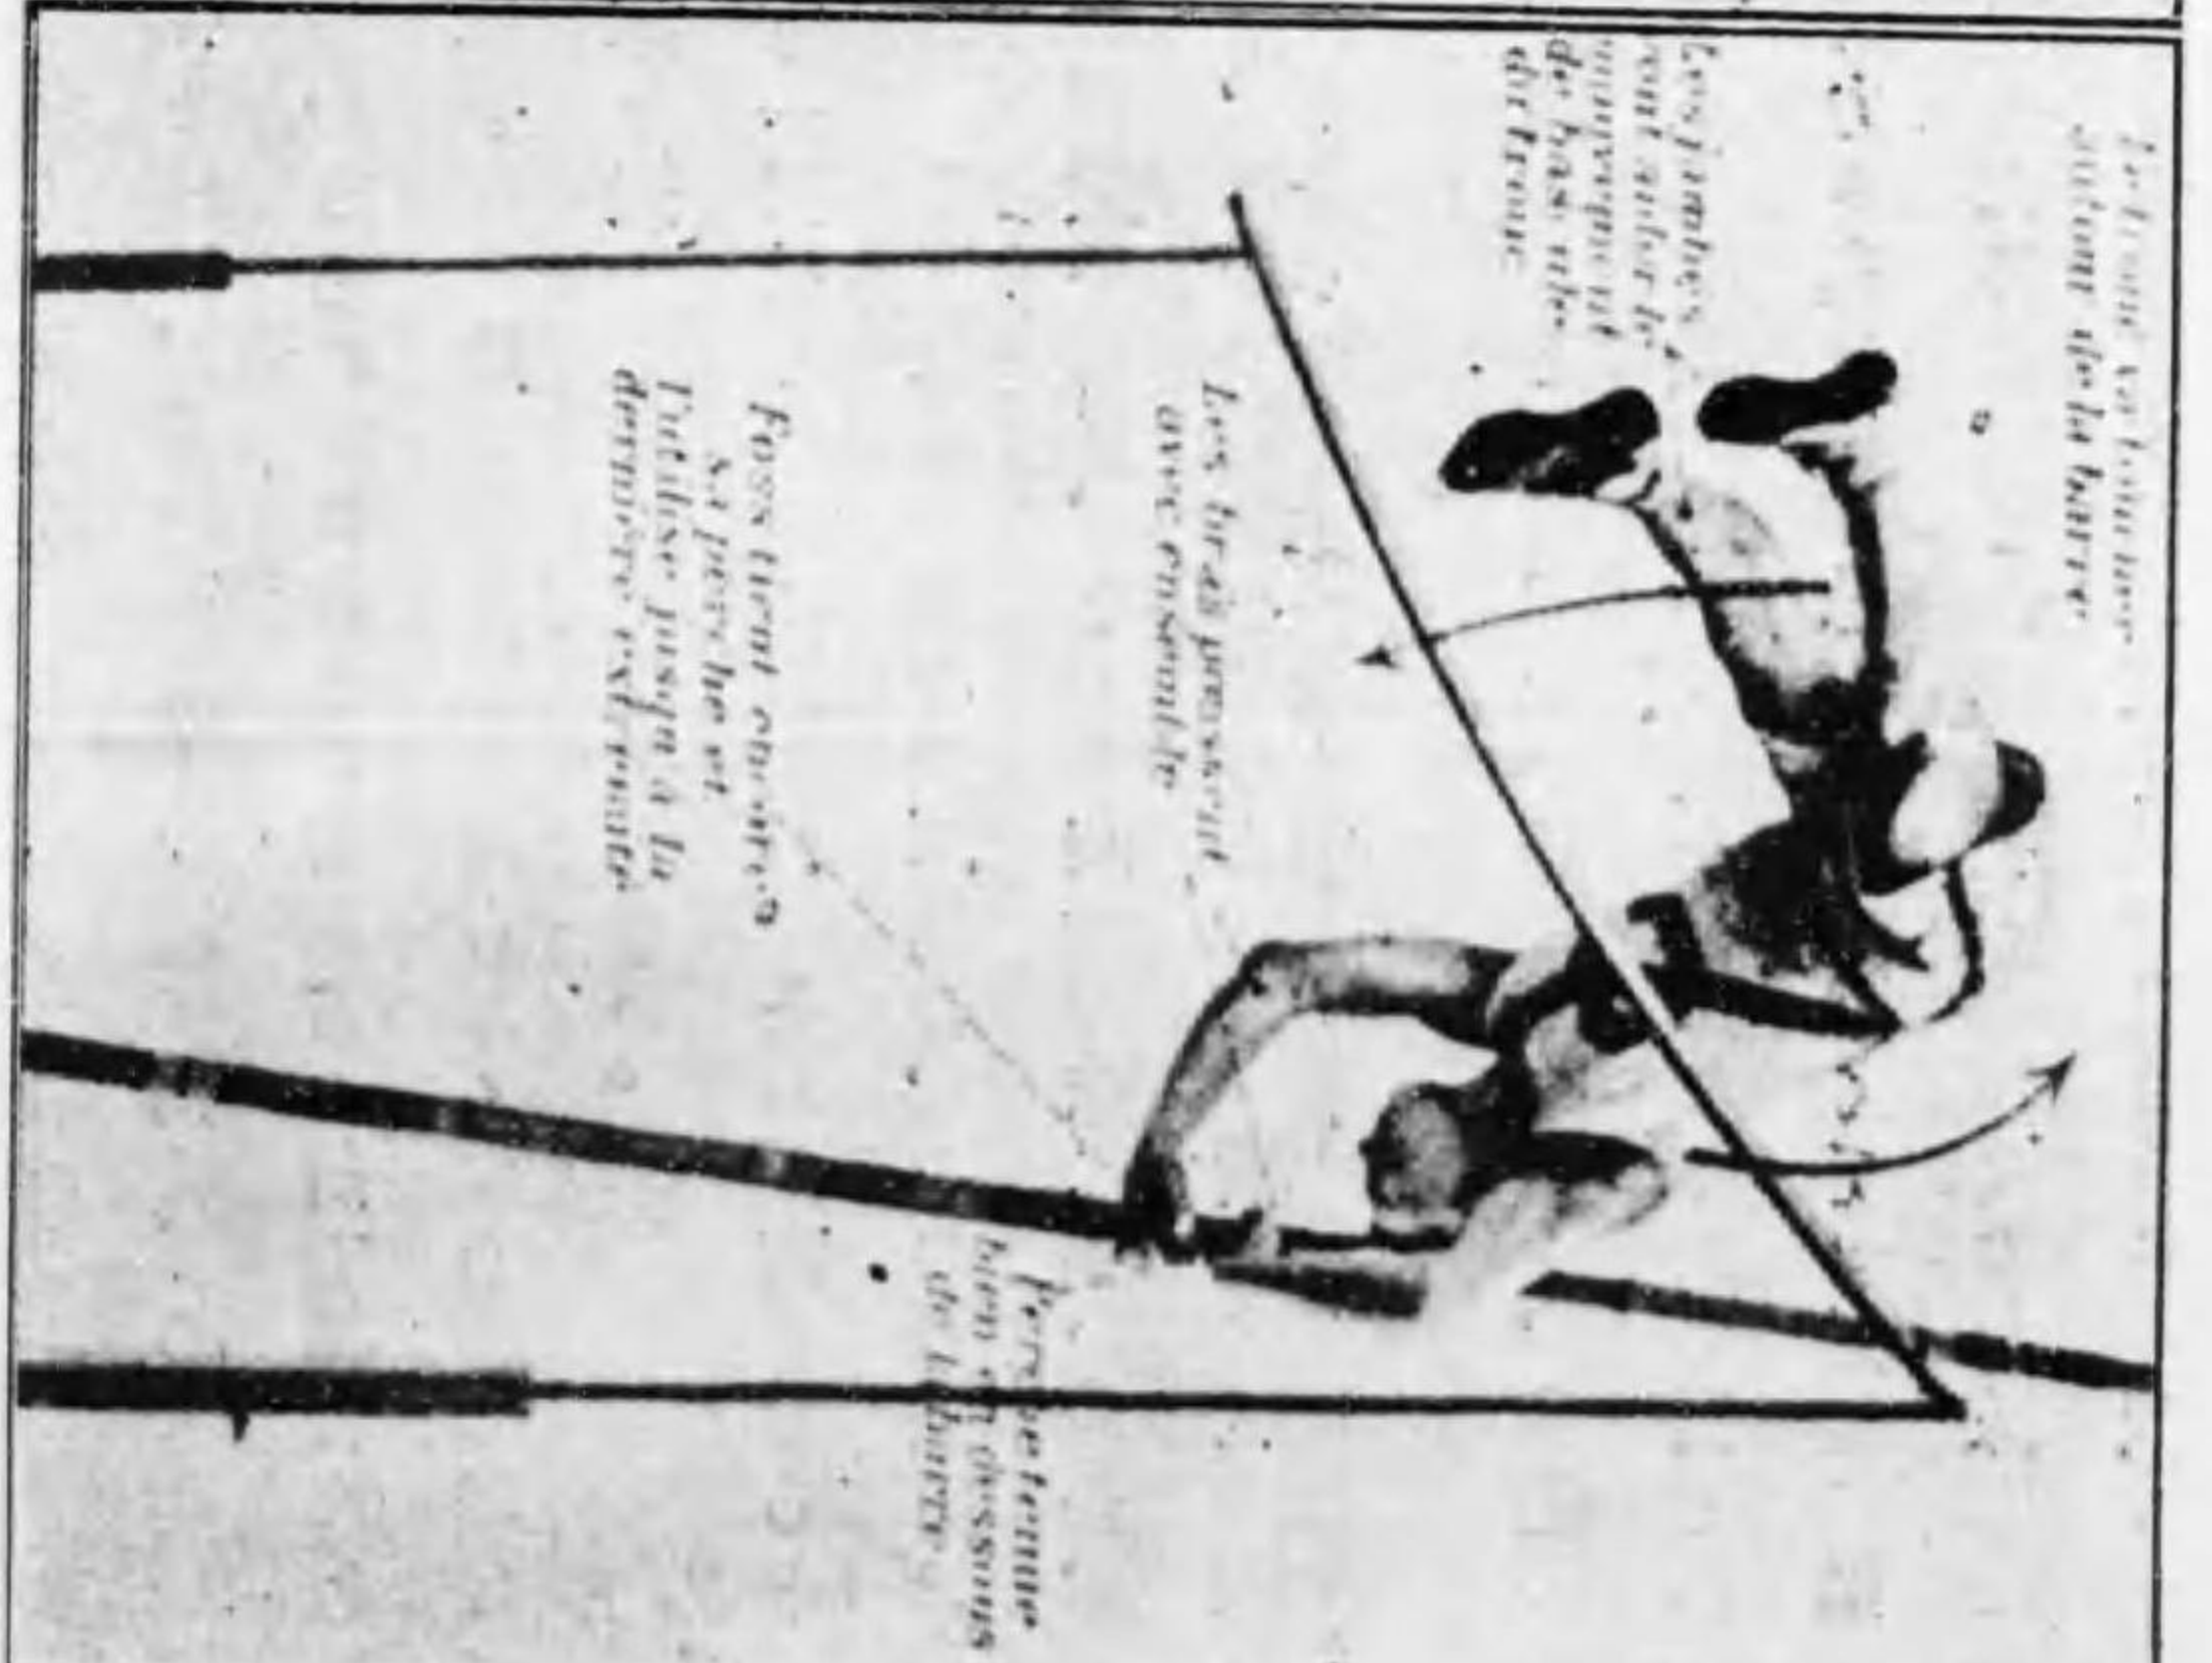 Le tronc va tourner
autour de la barre
Les jambes
vont aider le
mouvement
de bascule
du tronc
Les bras pressent
avec ensemble
Foss tient encore
sa perche et
l'utilise jusqu'à la
dernière extrémité
Perche tenue
bien en dessous
de la barre